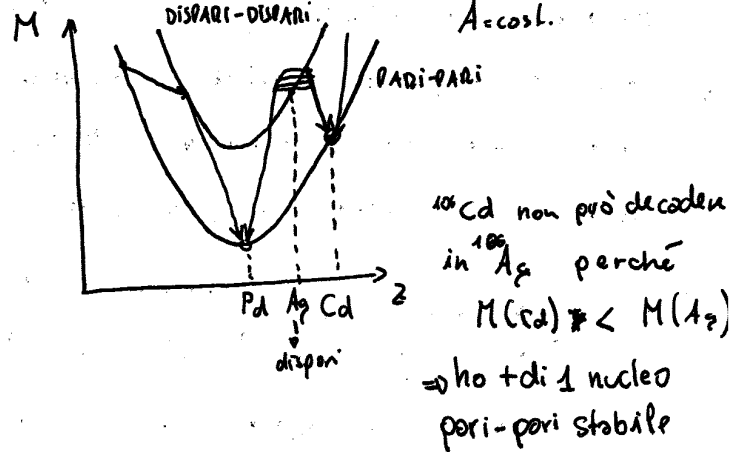 M
DISPARI-DISPARI
A=cost.
PARI-PARI
Pd Ag Cd
Z
dispari
¹⁰⁶Cd non può decadere
in ¹⁰⁶Ag perché
M(Cd) < M(Ag)
⇒ ho + di 1 nucleo
pari-pari stabile